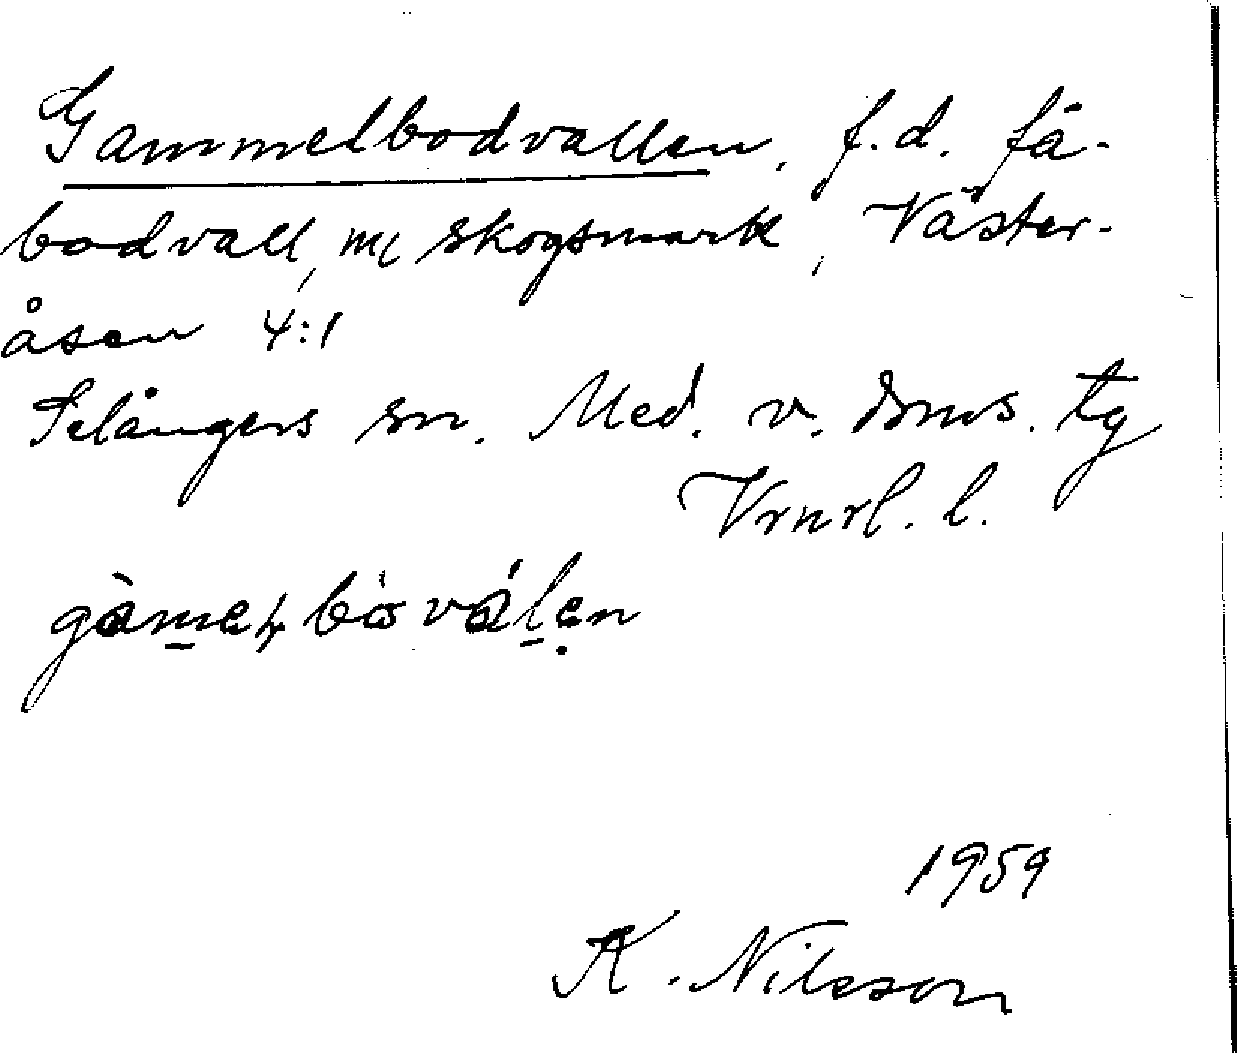 Gammelbodvallen, f.d. fä-
bodvall, m skogsmark, Väster-
åsen 4:1
Selångers sn. Med. v. dms. tg
Vrnrl. l.
1959
K. Nilsson